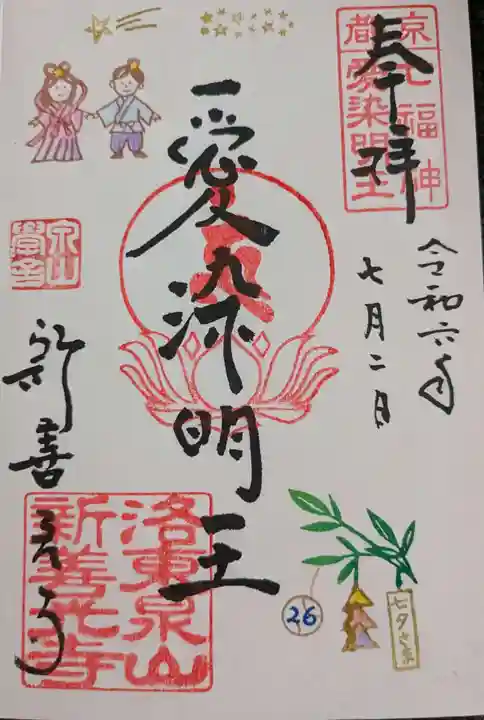 奉拝
京都七福神
愛染明王
令和六年
七月二日
愛染明王
泉山
新善光寺
洛東泉山
新善光寺
26
七夕さま